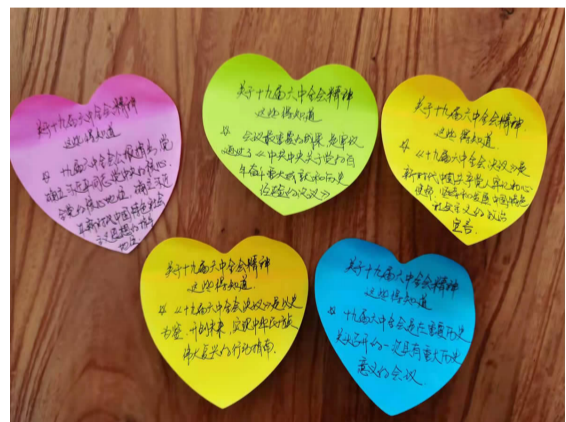 关于十九届六中全会精神
这些得知道
# 十九届六中全会指出,党
确立习近平同志党中央的核心、
全党的核心地位,确立习近
平新时代中国特色社会
主义思想的指导
地位
关于十九届六中全会精神
这些得知道
# 会议最重要的成果,是审议
通过了《中共中央关于党的百
年奋斗重大成就和历史
经验的决议》
关于十九届六中全会精神
这些得知道
# 《十九届六中全会决议》是
新时代中国共产党人牢记初心
使命,坚持和发展中国特色
社会主义的政治
宣言
关于十九届六中全会精神
这些得知道
# 《十九届六中全会决议》是以史
为鉴、开创未来,实现中华民族
伟大复兴的行动指南.
关于十九届六中全会精神
这些得知道
# 十九届六中全会是在重要历史
关头召开的一次具有重大历史
意义的会议